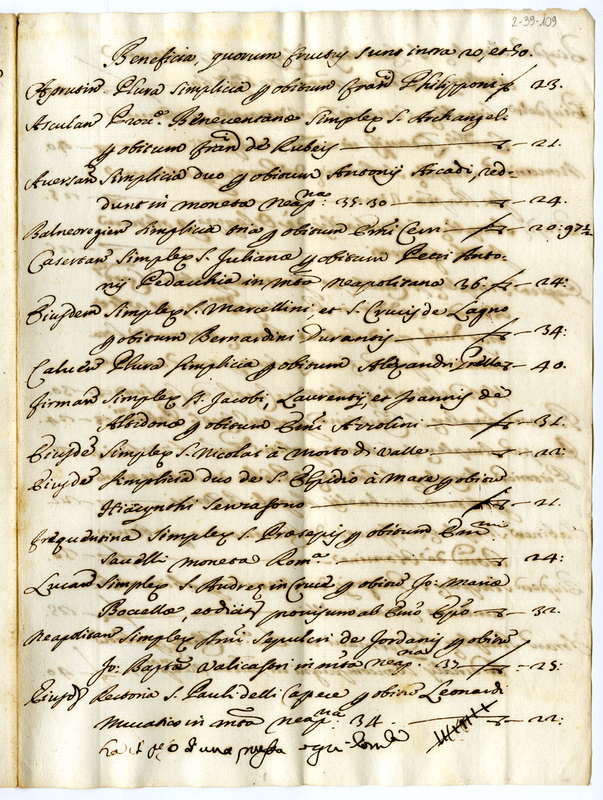 2-39-109
Beneficia, quorum fructus sunt intra 20, et 50.
Aprutin Plura Simplicia p obitum Fran Philipponi 23.
Asculan Prov. Beneventanæ Simplex S. Archangeli
p obitum Fran de Rubeis 21.
Aversan Simplicia duo p obitum Antonij Arcadi, red-
dunt in moneta neap.na 35.30 24.
Balneoregien Simplicia tria p obitum Cerri 20: 97½
Casertan Simplex S. Julianæ p obitum Petri Anto-
nij Pedacchia in mta neapolitana 36. 24:
Eiusdem Simplex S. Marcellini, et S. Crucis de Lagno
p obitum Bernardini Durantis 34:
Plura Simplicia p obitum Alexandri 40.
Firman Simplex S. Jacobi, Laurentij, et Joannis de
p obitum Emi Azzolini 31.
Eiusde Simplex S. Nicolai à Morto di Valle 22:
Eiusde Simplicia duo de S. Elpidio à Mare p obitu
Hiacynthi 21.
Simplex S. Præsepis p obitum Emi
Savelli moneta Rom.a 24:
Lucan Simplex S. Andreæ in p obitu Jo: Mariæ
Bocellæ, provisum ab 32.
Neapolitan Simplex Smi Sepulcri de Jordanis p obitu
Jo: Bapta in mta neap.na 37 25:
Eiusde Rectoria S. Pauli delli Capece p obitu Leonardi
in mta neap.na 34. 22:
di una